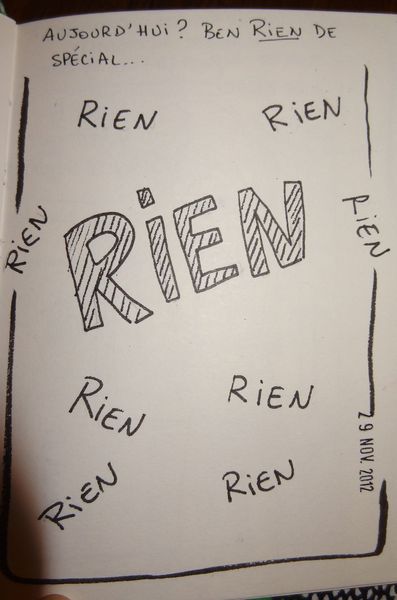 AUJOURD'HUI? BEN RIEN DE
SPÉCIAL...
RiEN
RiEN
RiEN
RiEN
RiEN
RiEN
RiEN
29 NOV. 2012
RiEN
RiEN